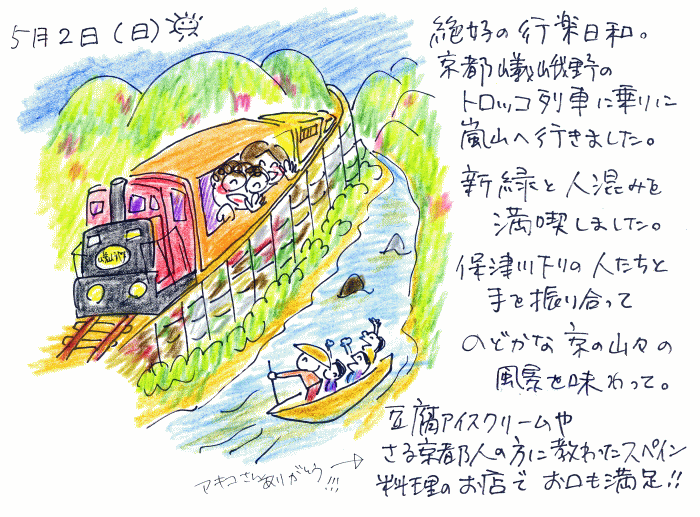 5月2日(日)
絶好の行楽日和。
京都嵯峨野の
トロッコ列車に乗りに
嵐山へ行きました。
新緑と人混みを
満喫しました。
保津川下りの人たちと
手を振り合って
のどかな京の山々の
風景を味わって。
豆腐アイスクリームや
さる京都人の方に教わったスペイン
料理のお店で お口も満足!!
アキコさんありがとう!!!